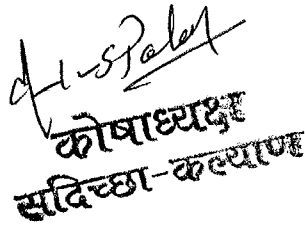 कोषाध्यक्ष
सदिच्छा-कल्याण